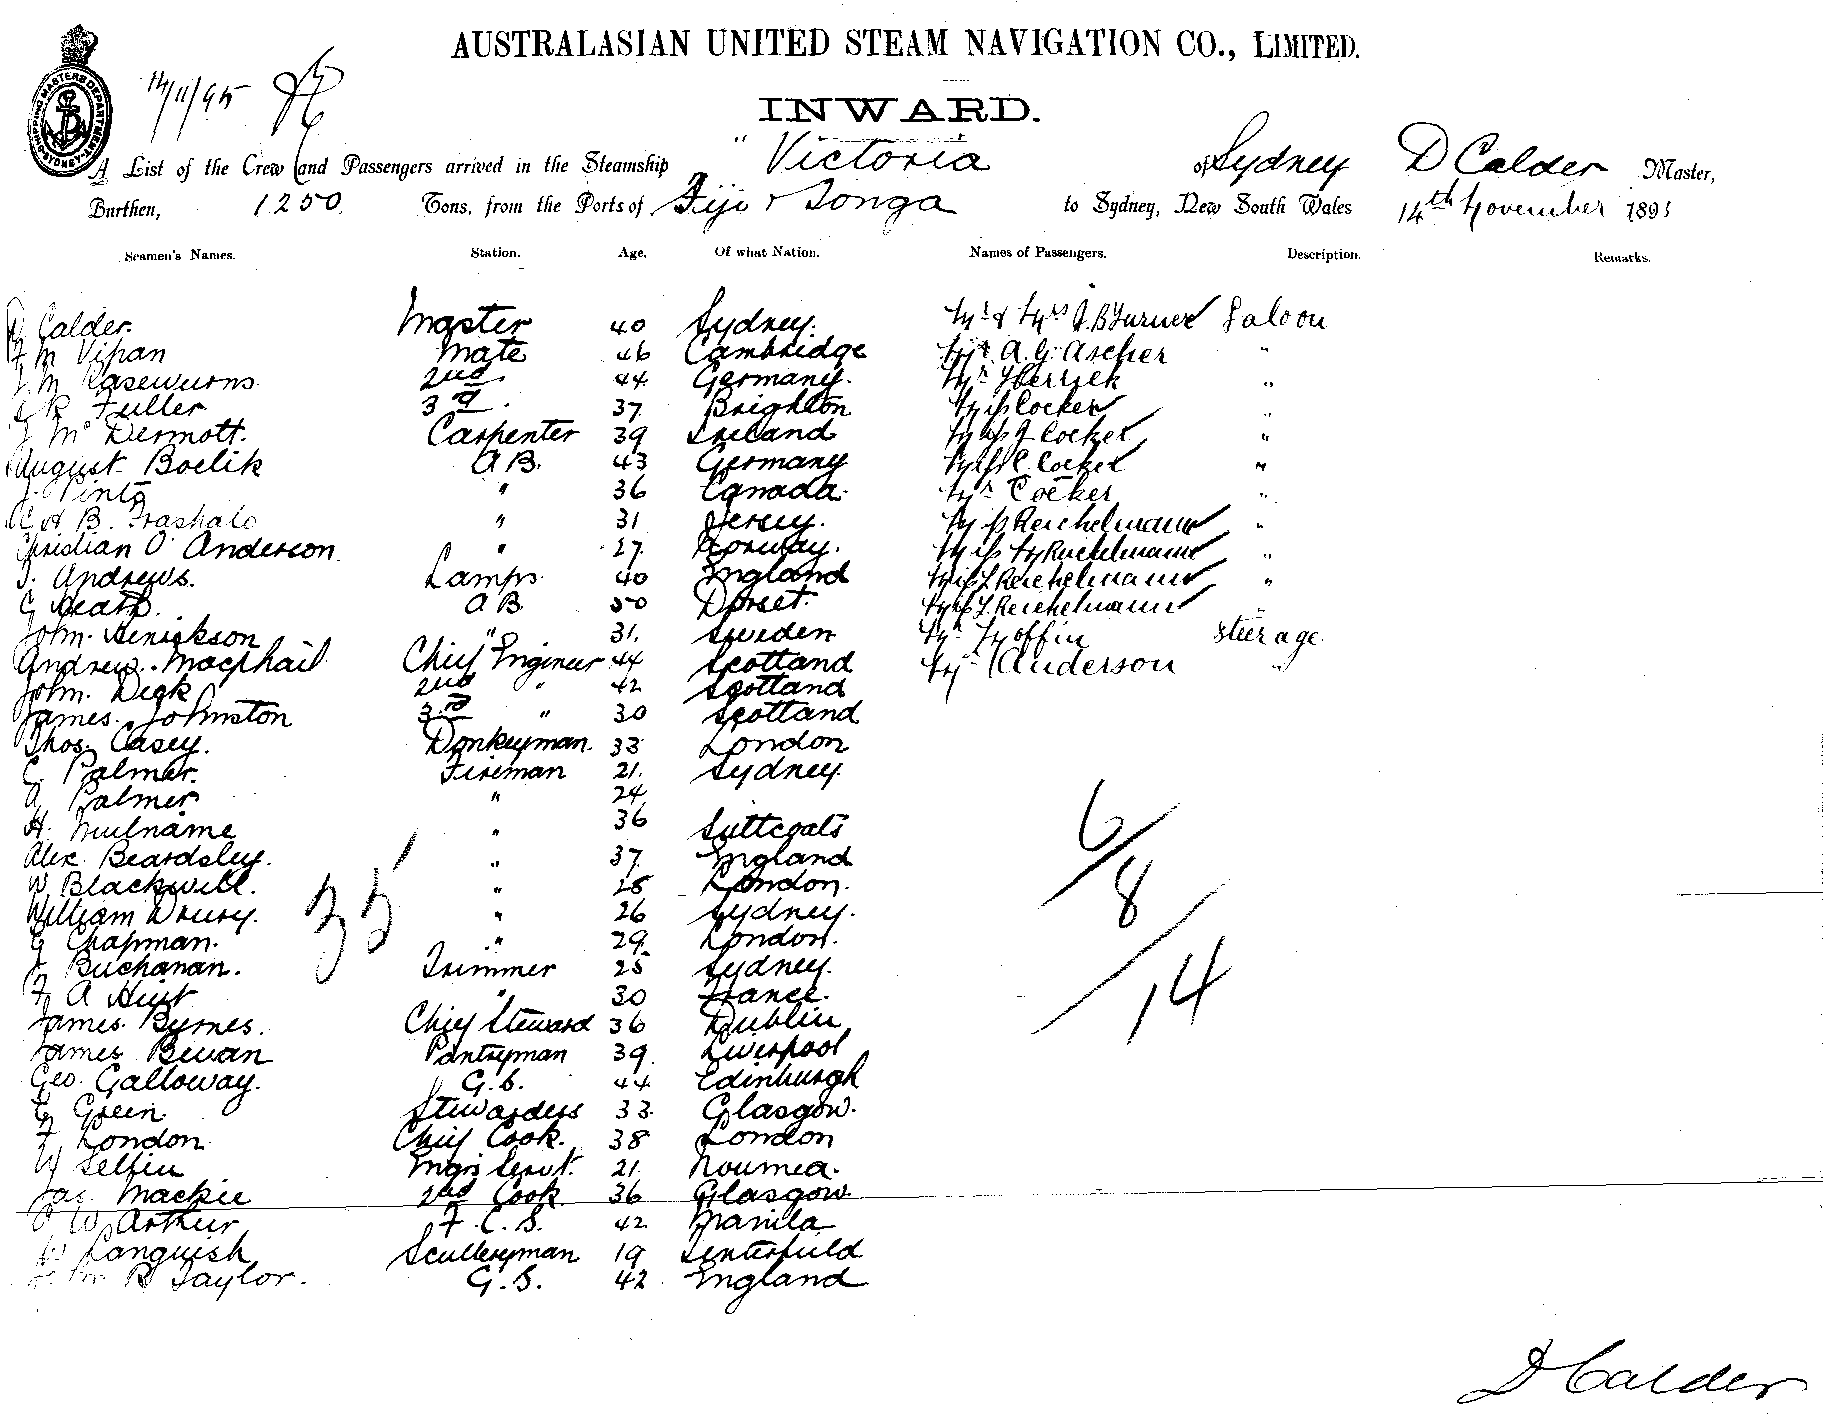 AUSTRALASIAN UNITED STEAM NAVIGATION CO., LIMITED.
SHIPPING MASTERS DEPARTMENT SYDNEY
14/11/95
INWARD.
A List of the Crew and Passengers arrived in the Steamship "Victoria of Sydney D Calder Master,
Burthen, 1250 Tons, from the Ports of Fiji & Tonga to Sydney, New South Wales 14th November 1895
Seamen's Names. Station. Age. Of what Nation. Names of Passengers. Description. Remarks.
D Calder. Master 40 Sydney. Mr & Mrs J.B Turner Saloon
F M Vipan Mate 46 Cambridge Mr A. G. Ascher "
M 2nd 44 Germany. Mr Herrick "
R Fuller 3rd 37 Brighton Miss Cocker "
J McDermott. Carpenter 39 Ireland Miss J Cocker "
August Boelik A B. 43 Germany Miss C. Cocker "
J. Pinto " 36 Canada. Mr Cocker "
C A B. " 31 Jersey. Miss Reichelmann "
Christian O. Anderson " 27 Norway. Miss M Reichelmann "
J. Andrews. Lamps 40 England Miss L Reichelmann "
G Heath. A B. 50 Dorset. Miss L Reichelmann "
John. Henrickson " 31. Sweden Mr Moffin Steerage
Andrew. Macphail Chief Engineer 44 Scotland Mr Anderson "
John. Dick 2nd " 42 Scotland
James. Johnston 3rd " 30 Scotland
Thos. Casey. Donkeyman. 33 London
C. Palmer. Fireman 21. Sydney.
A Palmer " 24
H. Mulname " 36 Suttcoats
Alex. Beardsley. " 37 England
W. Blackwell. " 28 London.
William Drury. " 26 Sydney.
G Chapman. " 29 London.
J Buchanan. Trimmer 25 Sydney.
F A Hurt " 30 France.
James. Byrnes. Chief Steward 36 Dublin
James Bevan Pantryman 39. Liverpool
Geo. Galloway. G.S. 44 Edinburgh
E Green Stewardess 33 Glasgow.
F London Chief Cook. 38 London
W Selfin Mgrs Servt. 21 Noumea.
Jas. Mackie 2nd Cook 36 Glasgow.
W Arthur F. C. S. 42 Manila
W Languish Sculleryman 19 Tenterfield
John B Taylor. G. S. 42 England
35
6/8/14
D Calder